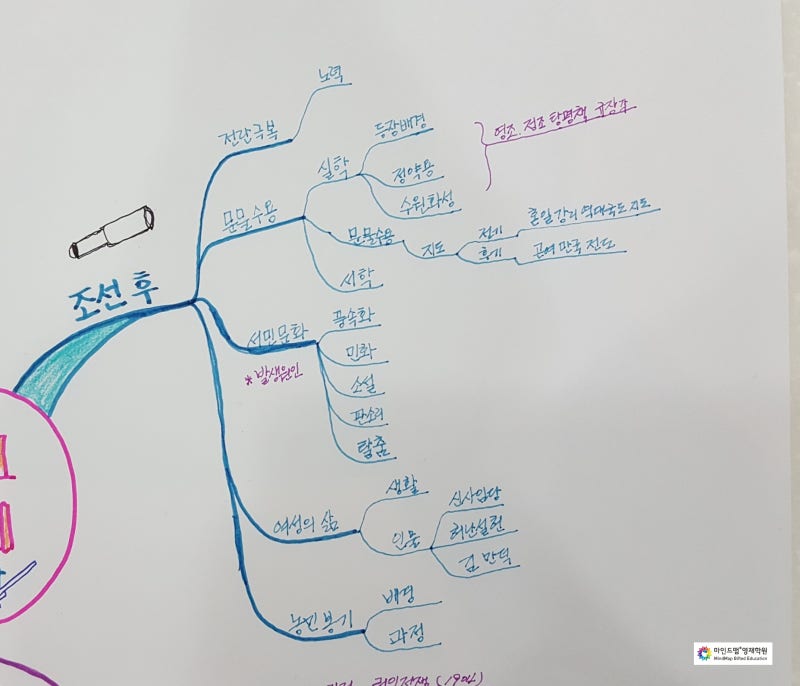 노력
전란극복
등장배경
영조.정조 탕평책 규장각
실학
정약용
수원화성
문물수용
문물수용
지도
전기
혼일강리역대국도지도
후기
곤여만국전도
서학
조선후
서민문화
*발생원인
풍속화
민화
소설
판소리
탈춤
여성의 삶
생활
인물
신사임당
허난설헌
김만덕
농민봉기
배경
과정
마인드맵영재학원
MindMap Gifted Education